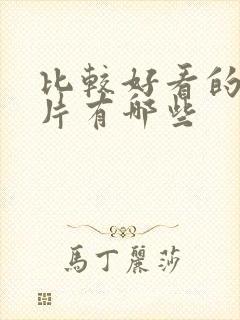 比較好看的
片有哪些
馬丁麗莎